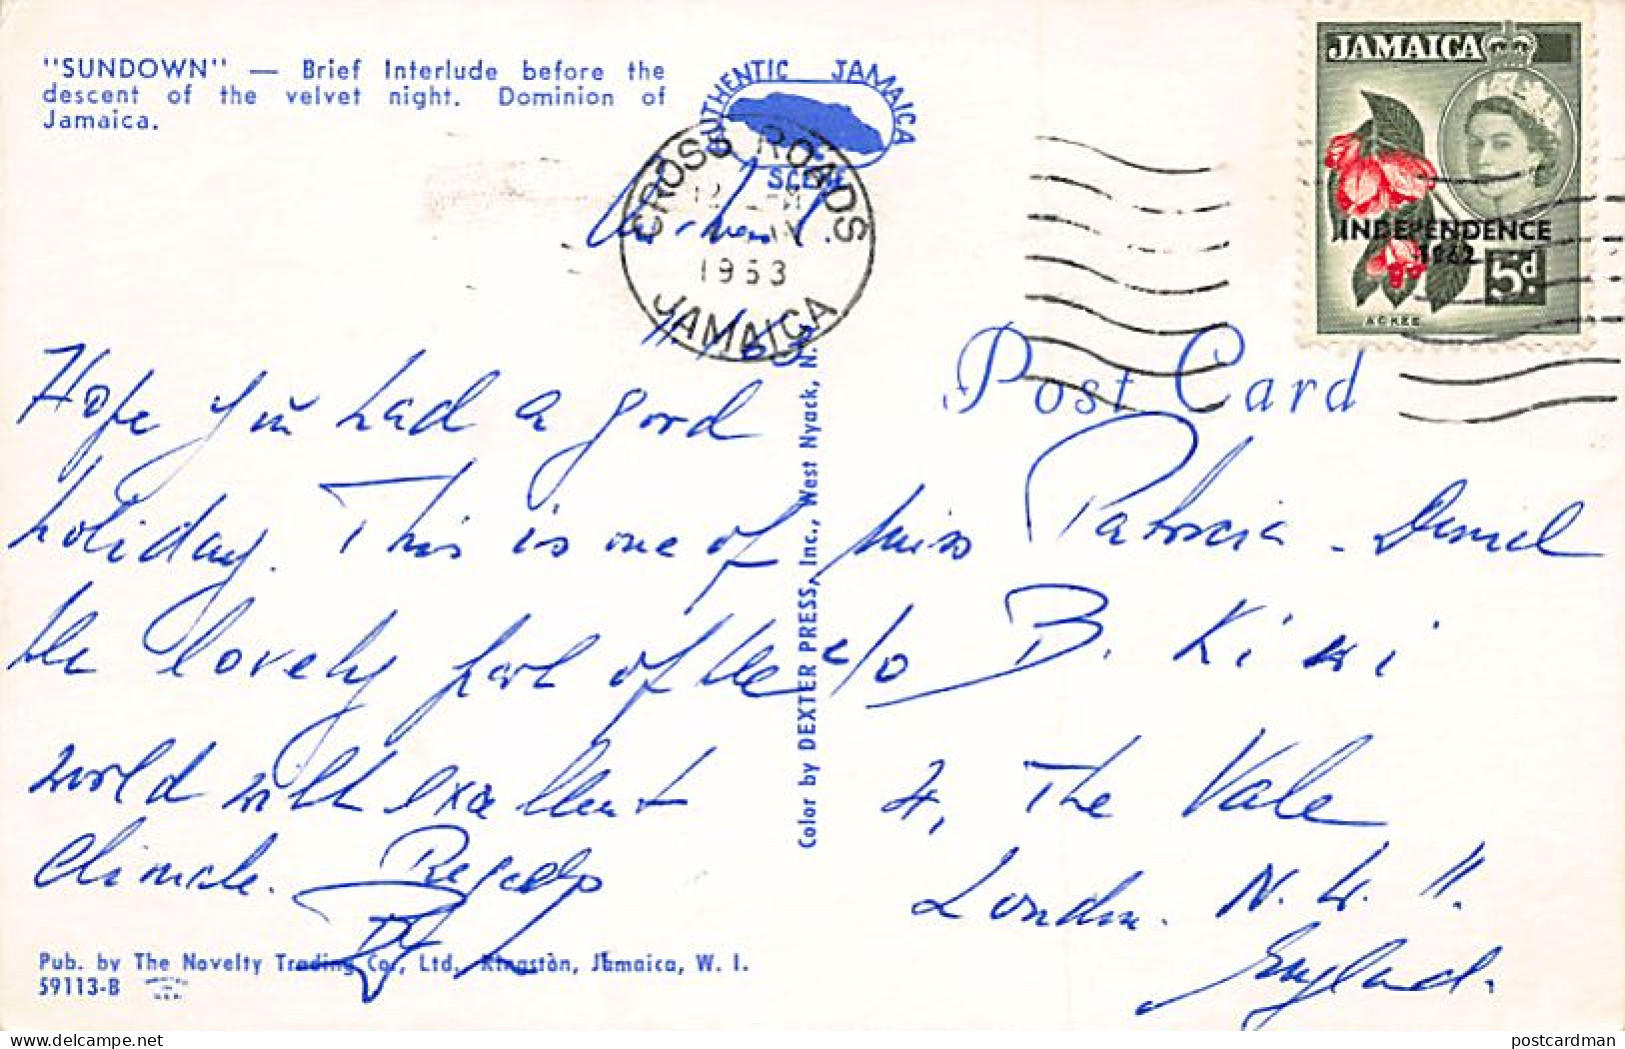 "SUNDOWN" — Brief Interlude before the
descent of the velvet night. Dominion of
Jamaica.
AUTHENTIC JAMAICA
SCENE
CROSS ROADS
12
1963
JAMAICA
JAMAICA
INDEPENDENCE
1962
5d
ACKEE
Post Card
Hope you had a good
holiday. This is one of
the lovely part of the
world with excellent
climate. Regards
Miss Patricia - Daniel
c/o B. Kiwi
4, The Vale
London. N.W. 11.
England.
Color by DEXTER PRESS, Inc., West Nyack, N.
Pub. by The Novelty Trading Co., Ltd., Kingston, Jamaica, W. I.
59113-B
postcardman